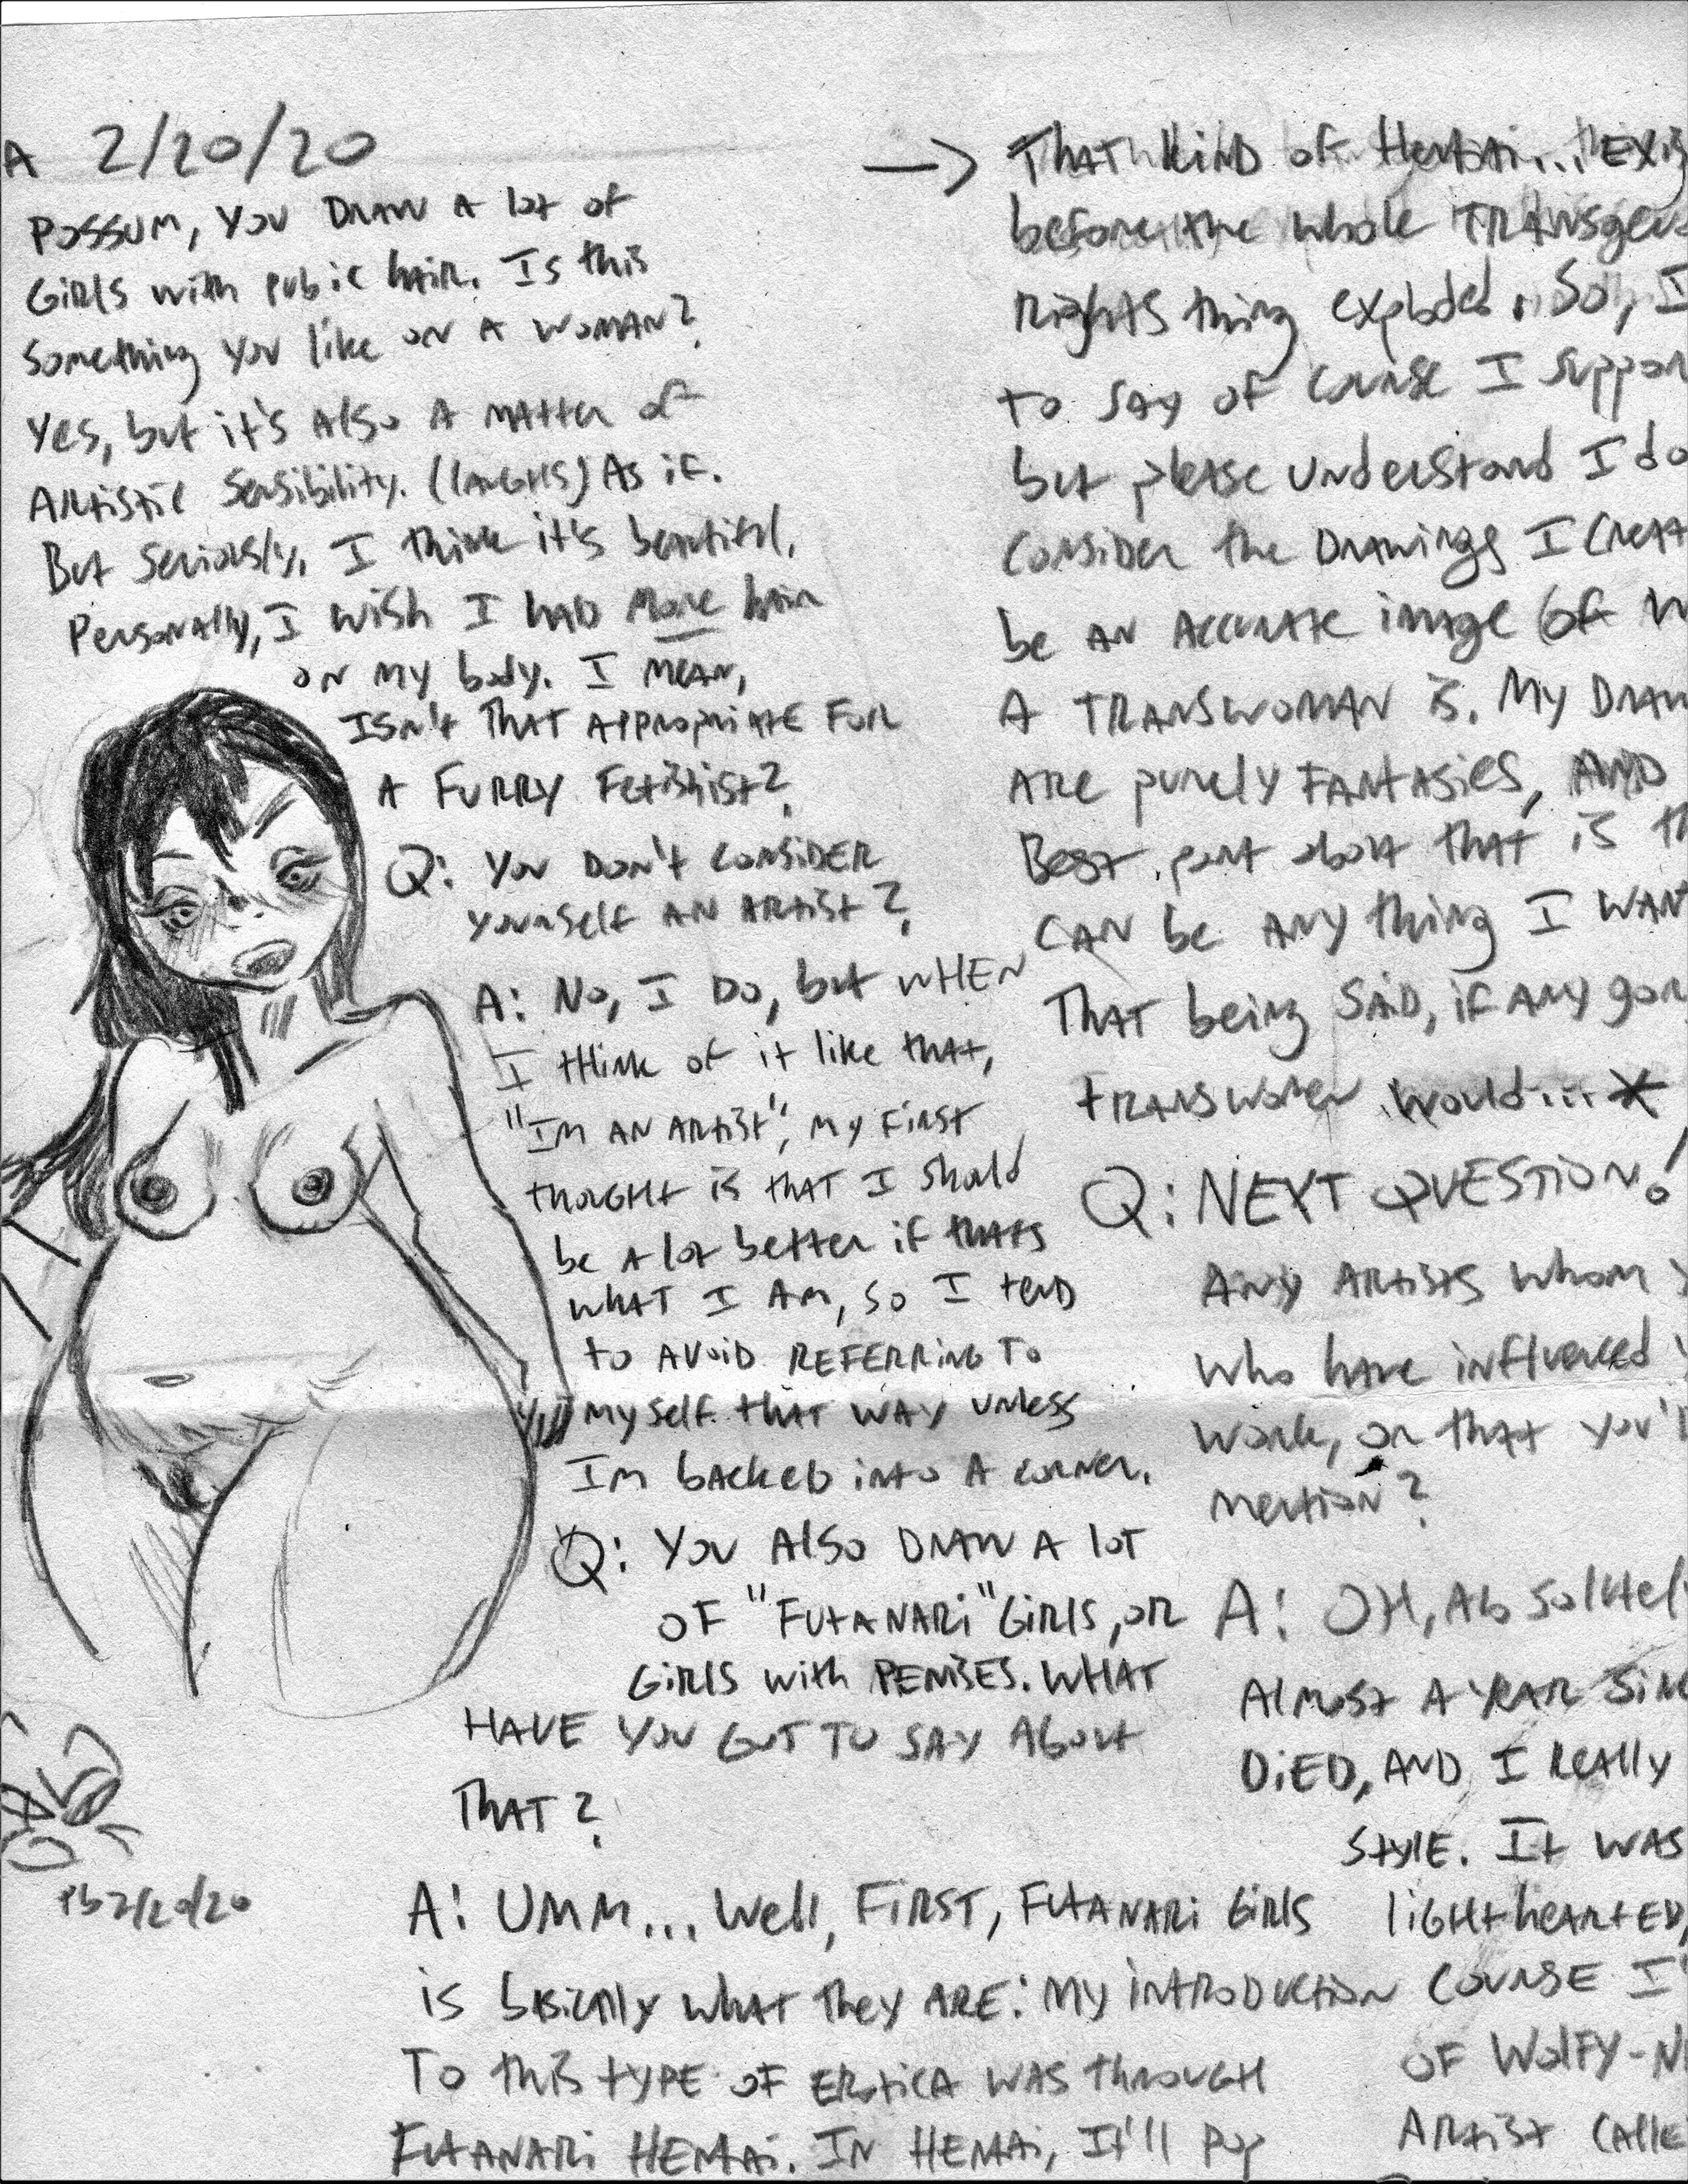 A 2/20/20
Possum, you draw a lot of
girls with pubic hair. Is this
something you like on a woman?
Yes, but it's also a matter of
artistic sensibility. (laughs) As if.
But seriously, I think it's beautiful.
Personally, I wish I had more hair
on my body. I mean,
isn't that appropriate for
a furry fetishist?
Q: You don't consider
yourself an artist?
A: No, I do, but when
I think of it like that,
"Im an artist", my first
thought is that I should
be a lot better if thats
what I am, so I tend
to avoid referring to
myself that way unless
Im backed into a corner.
Q: You also draw a lot
of "futanari" girls, or
girls with penises. What
have you got to say about
that?
Pb 2/20/20
A: Umm... Well, first, futanari girls
is basically what they are: my introduction
to this type of erotica was through
futanari hentai. In hentai, it'll pop
→ That kind of hentai... exis
before the whole transgen
rights thing exploded. So, I
to say of course I suppor
but please understand I do
consider the drawings I creat
be an accurate image of w
a transwoman is. My draw
are purely fantasies, and
best part about that is th
can be any thing I want
That being said, if any gor
transwomen would... *
Q: NEXT QUESTION!
Any artists whom y
who have influenced y
work, or that you'l
mention?
A: Oh, absolutely
Almost a year sin
died, and I really
style. It was
lighthearted,
course I'
of Wolfy-Ni
artist calle